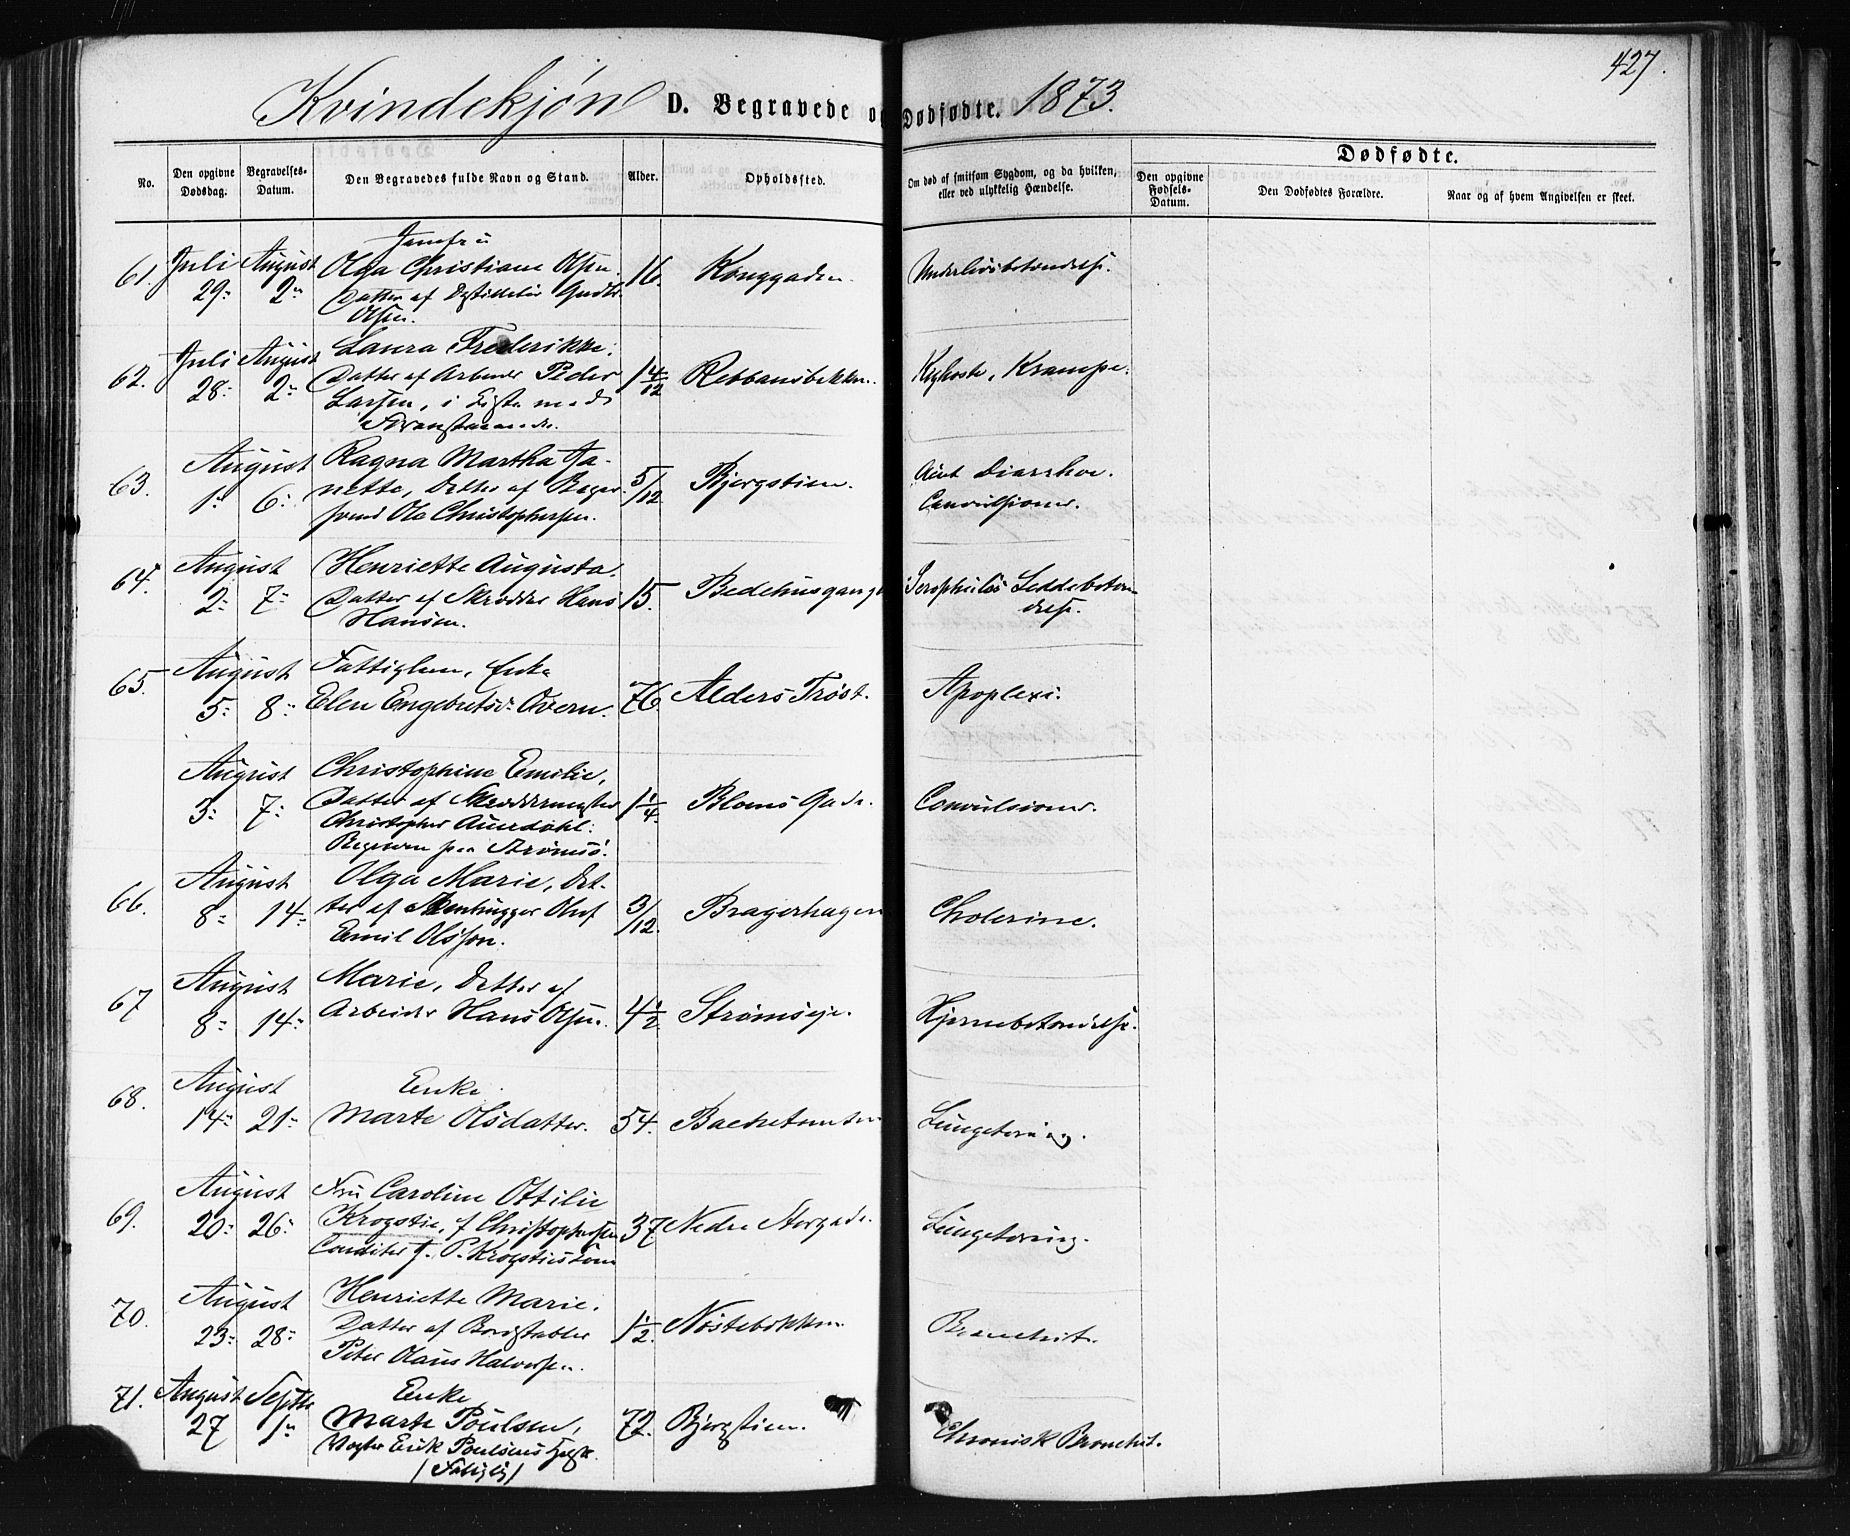 427.
Kvindekjøn D. Begravede og Dødfødte. 1873.
No. Den opgivne Dødsdag. Begravelses-Datum. Den Begravedes fulde Navn og Stand. Alder. Opholdssted. Om død af smitsom Sygdom, og da hvilken, eller ved ulykkelig Hændelse. Dødfødte.
Den opgivne Fødsels-Datum. Den Dødfødtes Forældre. Naar og af hvem Angivelsen er skeet.
Jomfru
61. Juli August Olga Christiane Olsen. 16. Konggaden. Underlivsbetændelse.
29: 2: Datter af Destillatør
Olsen.
62. Juli August Laura Frederikke,
28: 2: Datter af Arbeider Peder 1 4/12 Rebbansbakken. Kighoste, Krampe.
Larsen, i Kiste med
63. August Ragna Martha Ja-
1: 6: nette, Datter af Bager- 5/12 Bjergstien. Acut Diarrhoe.
svend Ole Christophersen. Convulsioner.
64. August Henriette Augusta.
2: 7: Datter af Skrædder Hans 15. Bedehusgangen Scrophuløs Leddebetæn-
Hansen. delse.
65. August Fattiglem, Enke
5: 8: Elen Engebretsd: Overn. 76. Alders Trøst. Apoplexi.
August Christophine Emilie,
3: 7: Datter af Skræddermester 1 1/4. Bloms Gade. Convulsioner.
Christopher
Begraven paa Strømsø.
66. August Olga Marie, Dat-
8: 14: ter af Stenhugger Oluf 3/12. Bragerhagen Cholerine.
Emil Olsson.
67 August Marie, Datter af
8: 14: Arbeider Hans Olsen. 4 1/2 Strømsøje. Hjernebetændelse.
68. August Enke
14: 21: Marte Olsdatter. 54. Bachetomten Lungetæring.
69. August Fru Caroline Ottilie
20: 26: Krogstie, f Christophersen 37 Nedre Storgade. Lungetæring.
Conditor J. P. Krogsties Kone
70. August Henriette Marie.
23: 28: Datter af Bordstabler 1 1/2. Nøstebakken. Bronchit.
Peter Olaus Halvorsen.
71. August Septbr Enke
27 1: Marte Poulsen, 72. Bjergstien. Chronisk Bronchit.
Vægter Erik Poulsens
(Fattig)